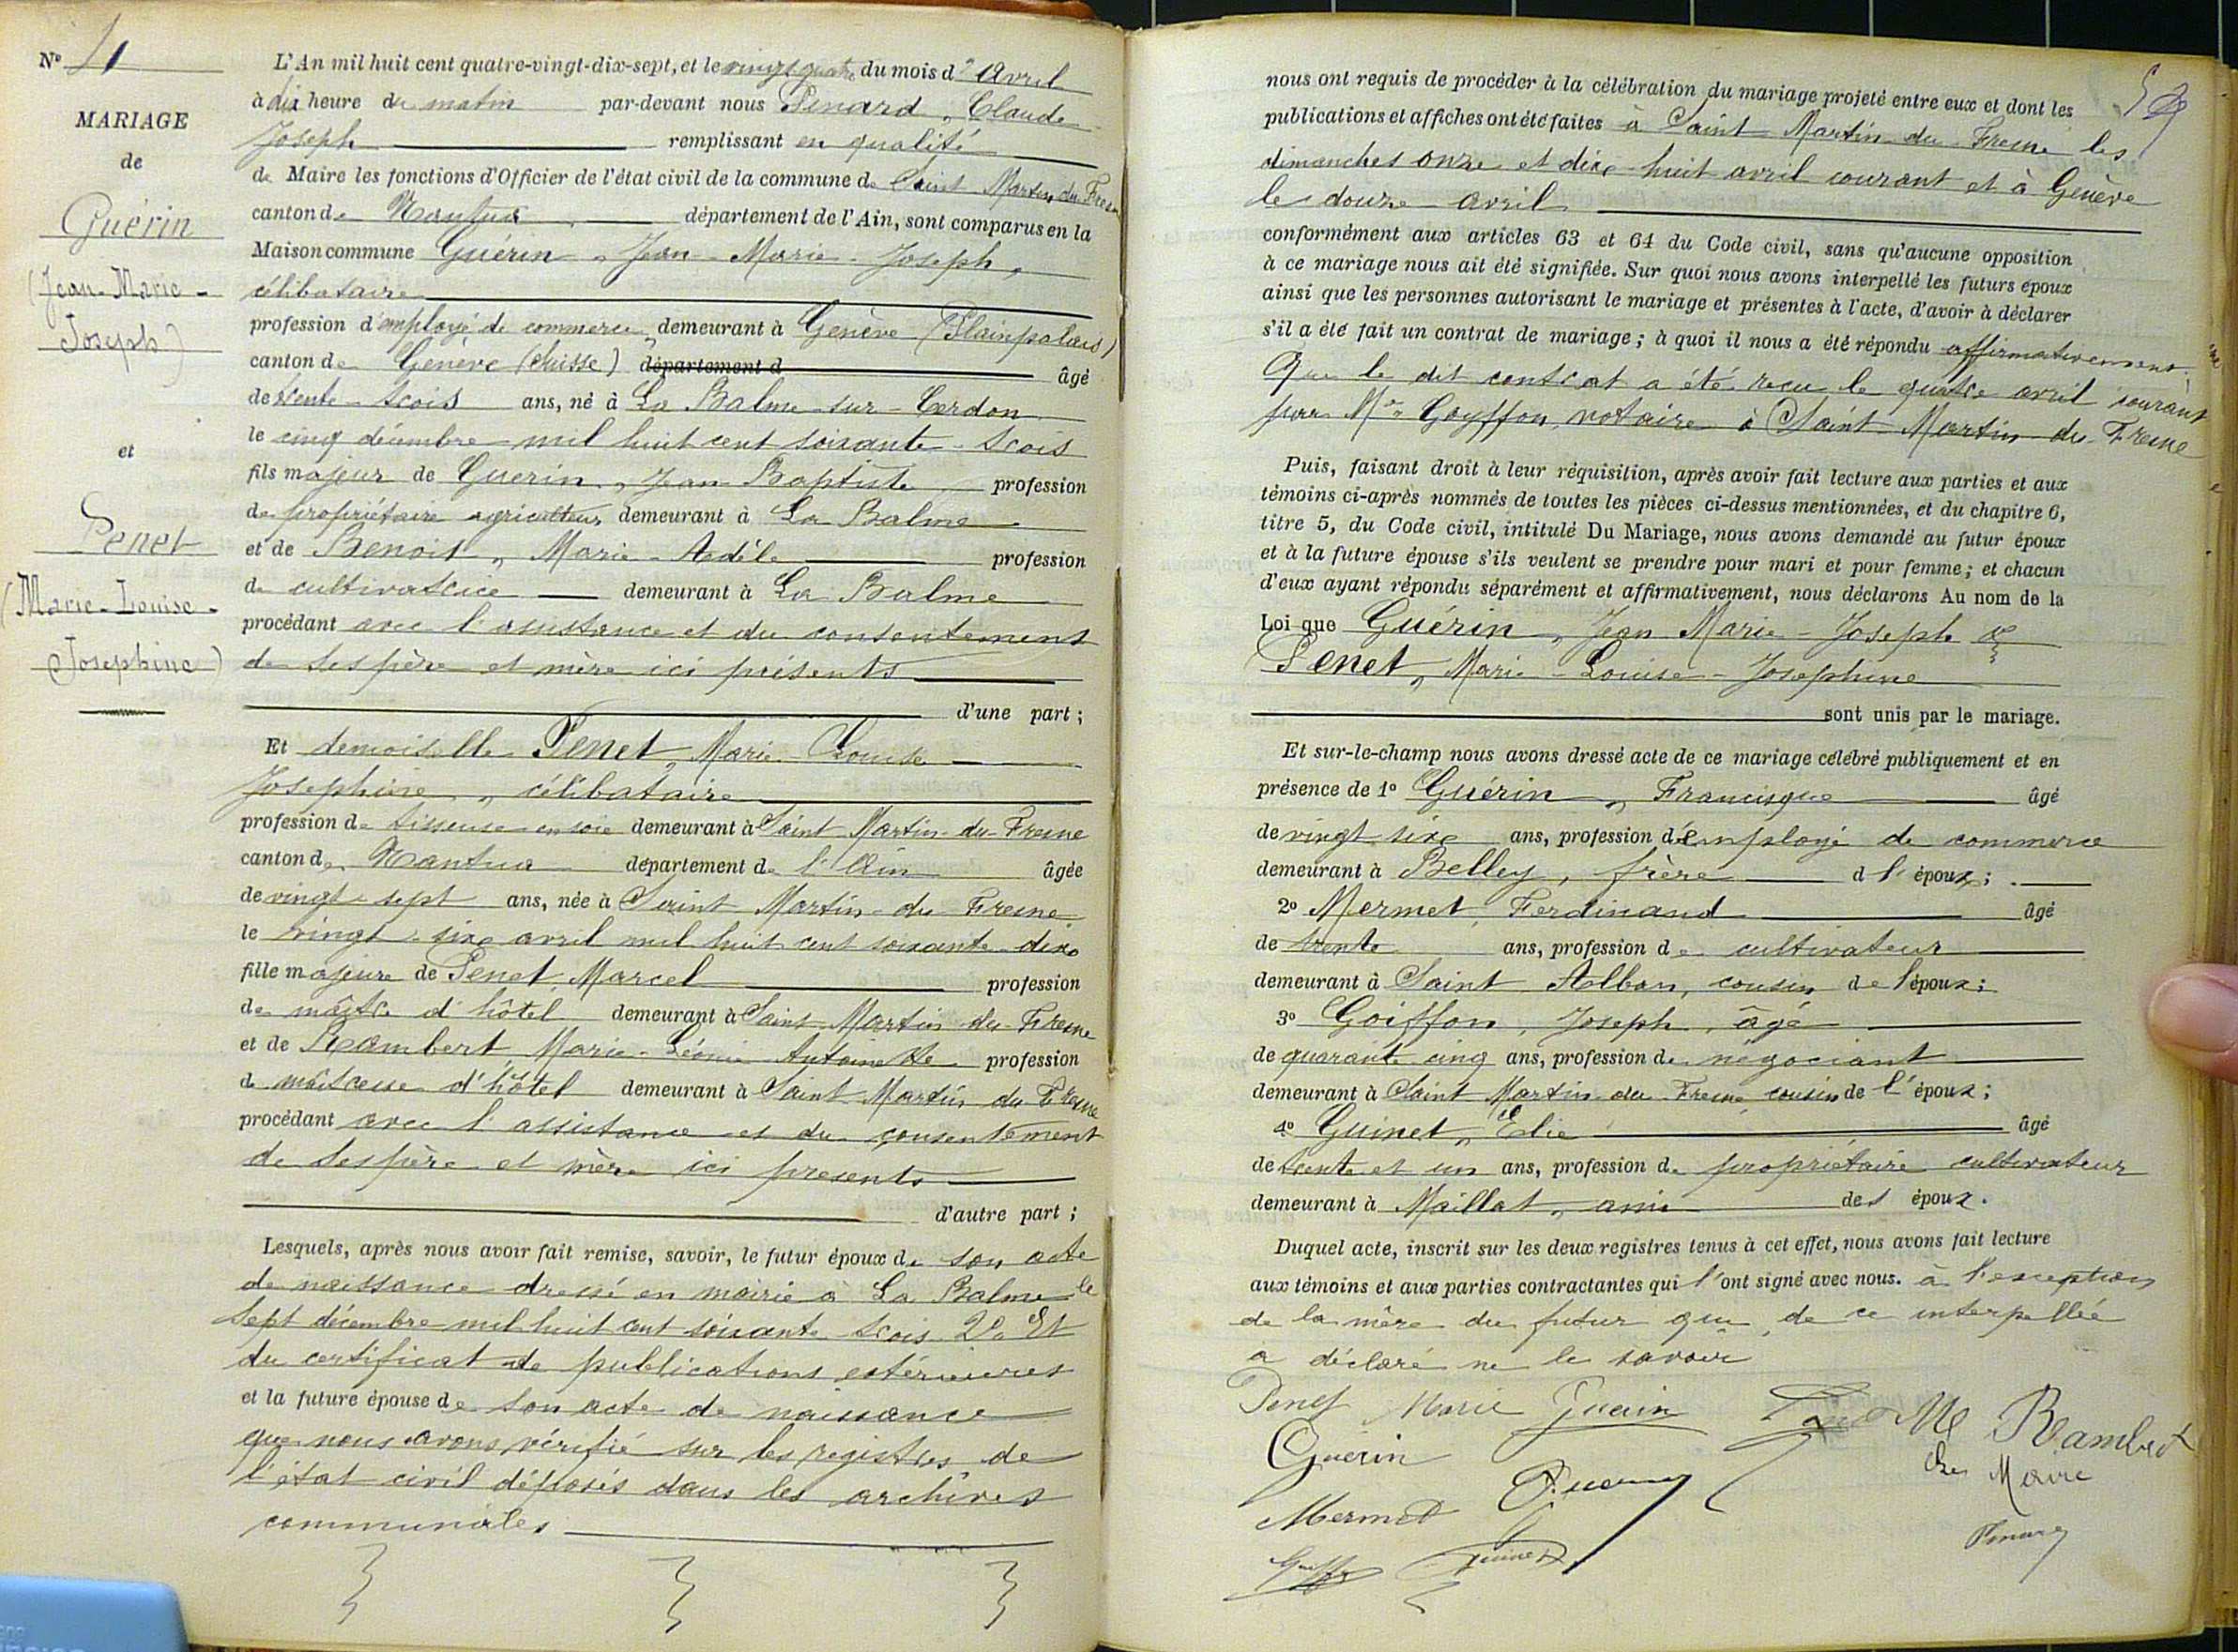 N° 4
MARIAGE
de
Guérin
(Jean-Marie-
Joseph)
et
Penet
(Marie-Louise-
Josephine)
L'An mil huit cent quatre-vingt-dix-sept, et le vingt quatre du mois d' Avril
à dix heure du matin par-devant nous Penard, Claude
Joseph remplissant en qualité
de Maire les fonctions d'Officier de l'état civil de la commune de Saint Martin du Fresne
canton de Nantua département de l'Ain, sont comparus en la
Maison commune Guérin, Jean-Marie-Joseph,
célibataire
profession d'employé de commerce, demeurant à Genève (Plainpalais)
canton de Genève (Suisse) département d âgé
de trente-trois ans, né à La Balme-sur-Cerdon
le cinq décembre mil huit cent soixante-trois
fils majeur de Guerin, Jean Baptiste profession
de propriétaire agriculteur demeurant à La Balme
et de Benoit, Marie-Adèle profession
de cultivatrice demeurant à La Balme
procédant avec l'assistance et du consentement
de ses père et mère ici présents
d'une part ;
Et demoiselle Penet, Marie-Louise
Josephine, célibataire
profession de tisseuse en soie demeurant à Saint Martin-du-Fresne
canton de Nantua département de l'Ain âgée
de vingt-sept ans, née à Saint Martin-du-Fresne
le vingt-six avril mil huit cent soixante-dix
fille majeure de Penet, Marcel profession
de maître d'hôtel demeurant à Saint Martin du Fresne
et de Rambert, Marie-Léonie-Antoinette profession
de maîtresse d'hôtel demeurant à Saint Martin du Fresne
procédant avec l'assistance et du consentement
de ses père et mère ici presents
d'autre part ;
Lesquels, après nous avoir fait remise, savoir, le futur époux de son acte
de naissance dressé en mairie à La Balme le
sept décembre mil huit cent soixante-trois. 2° Et
du certificat de publications extérieures
et la future épouse de son acte de naissance
que nous avons vérifié sur les registres de
l'état civil déposés dans les archives
communales
nous ont requis de procéder à la célébration du mariage projeté entre eux et dont les
publications et affiches ont été faites à Saint Martin-du-Fresne les
dimanches onze et dix-huit avril courant et à Genève
le douze avril
conformément aux articles 63 et 64 du Code civil, sans qu'aucune opposition
à ce mariage nous ait été signifiée. Sur quoi nous avons interpellé les futurs époux
ainsi que les personnes autorisant le mariage et présentes à l'acte, d'avoir à déclarer
s'il a été fait un contrat de mariage ; à quoi il nous a été répondu affirmativement
Que le dit contrat a été reçu le quatre avril courant
par Me Goyffon, notaire à Saint-Martin-du-Fresne
Puis, faisant droit à leur réquisition, après avoir fait lecture aux parties et aux
témoins ci-après nommés de toutes les pièces ci-dessus mentionnées, et du chapitre 6,
titre 5, du Code civil, intitulé Du Mariage, nous avons demandé au futur époux
et à la future épouse s'ils veulent se prendre pour mari et pour femme ; et chacun
d'eux ayant répondu séparément et affirmativement, nous déclarons Au nom de la
Loi que Guérin, Jean Marie-Joseph &
Penet, Marie-Louise-Josephine
sont unis par le mariage.
Et sur-le-champ nous avons dressé acte de ce mariage célébré publiquement et en
présence de 1° Guérin, Francisque âgé
de vingt six ans, profession d'employé de commerce
demeurant à Belley, frère d l'époux ;
2° Mermet, Ferdinand âgé
de trente ans, profession de cultivateur
demeurant à Saint Alban, cousin de l'époux ;
3° Goiffon, Joseph, âgé
de quarante cinq ans, profession de négociant
demeurant à Saint Martin du Fresne, cousin de l'époux ;
4° Guinet, Elie âgé
de trente et un ans, profession de propriétaire cultivateur
demeurant à Maillat, ami des époux.
Duquel acte, inscrit sur les deux registres tenus à cet effet, nous avons fait lecture
aux témoins et aux parties contractantes qui l'ont signé avec nous. à l'exception
de la mère du futur qui, de ce interpellée
a déclaré ne le savoir
Penet Marie Guerin M Rambert
Guérin Le Maire
Mermet
Guinet Penard